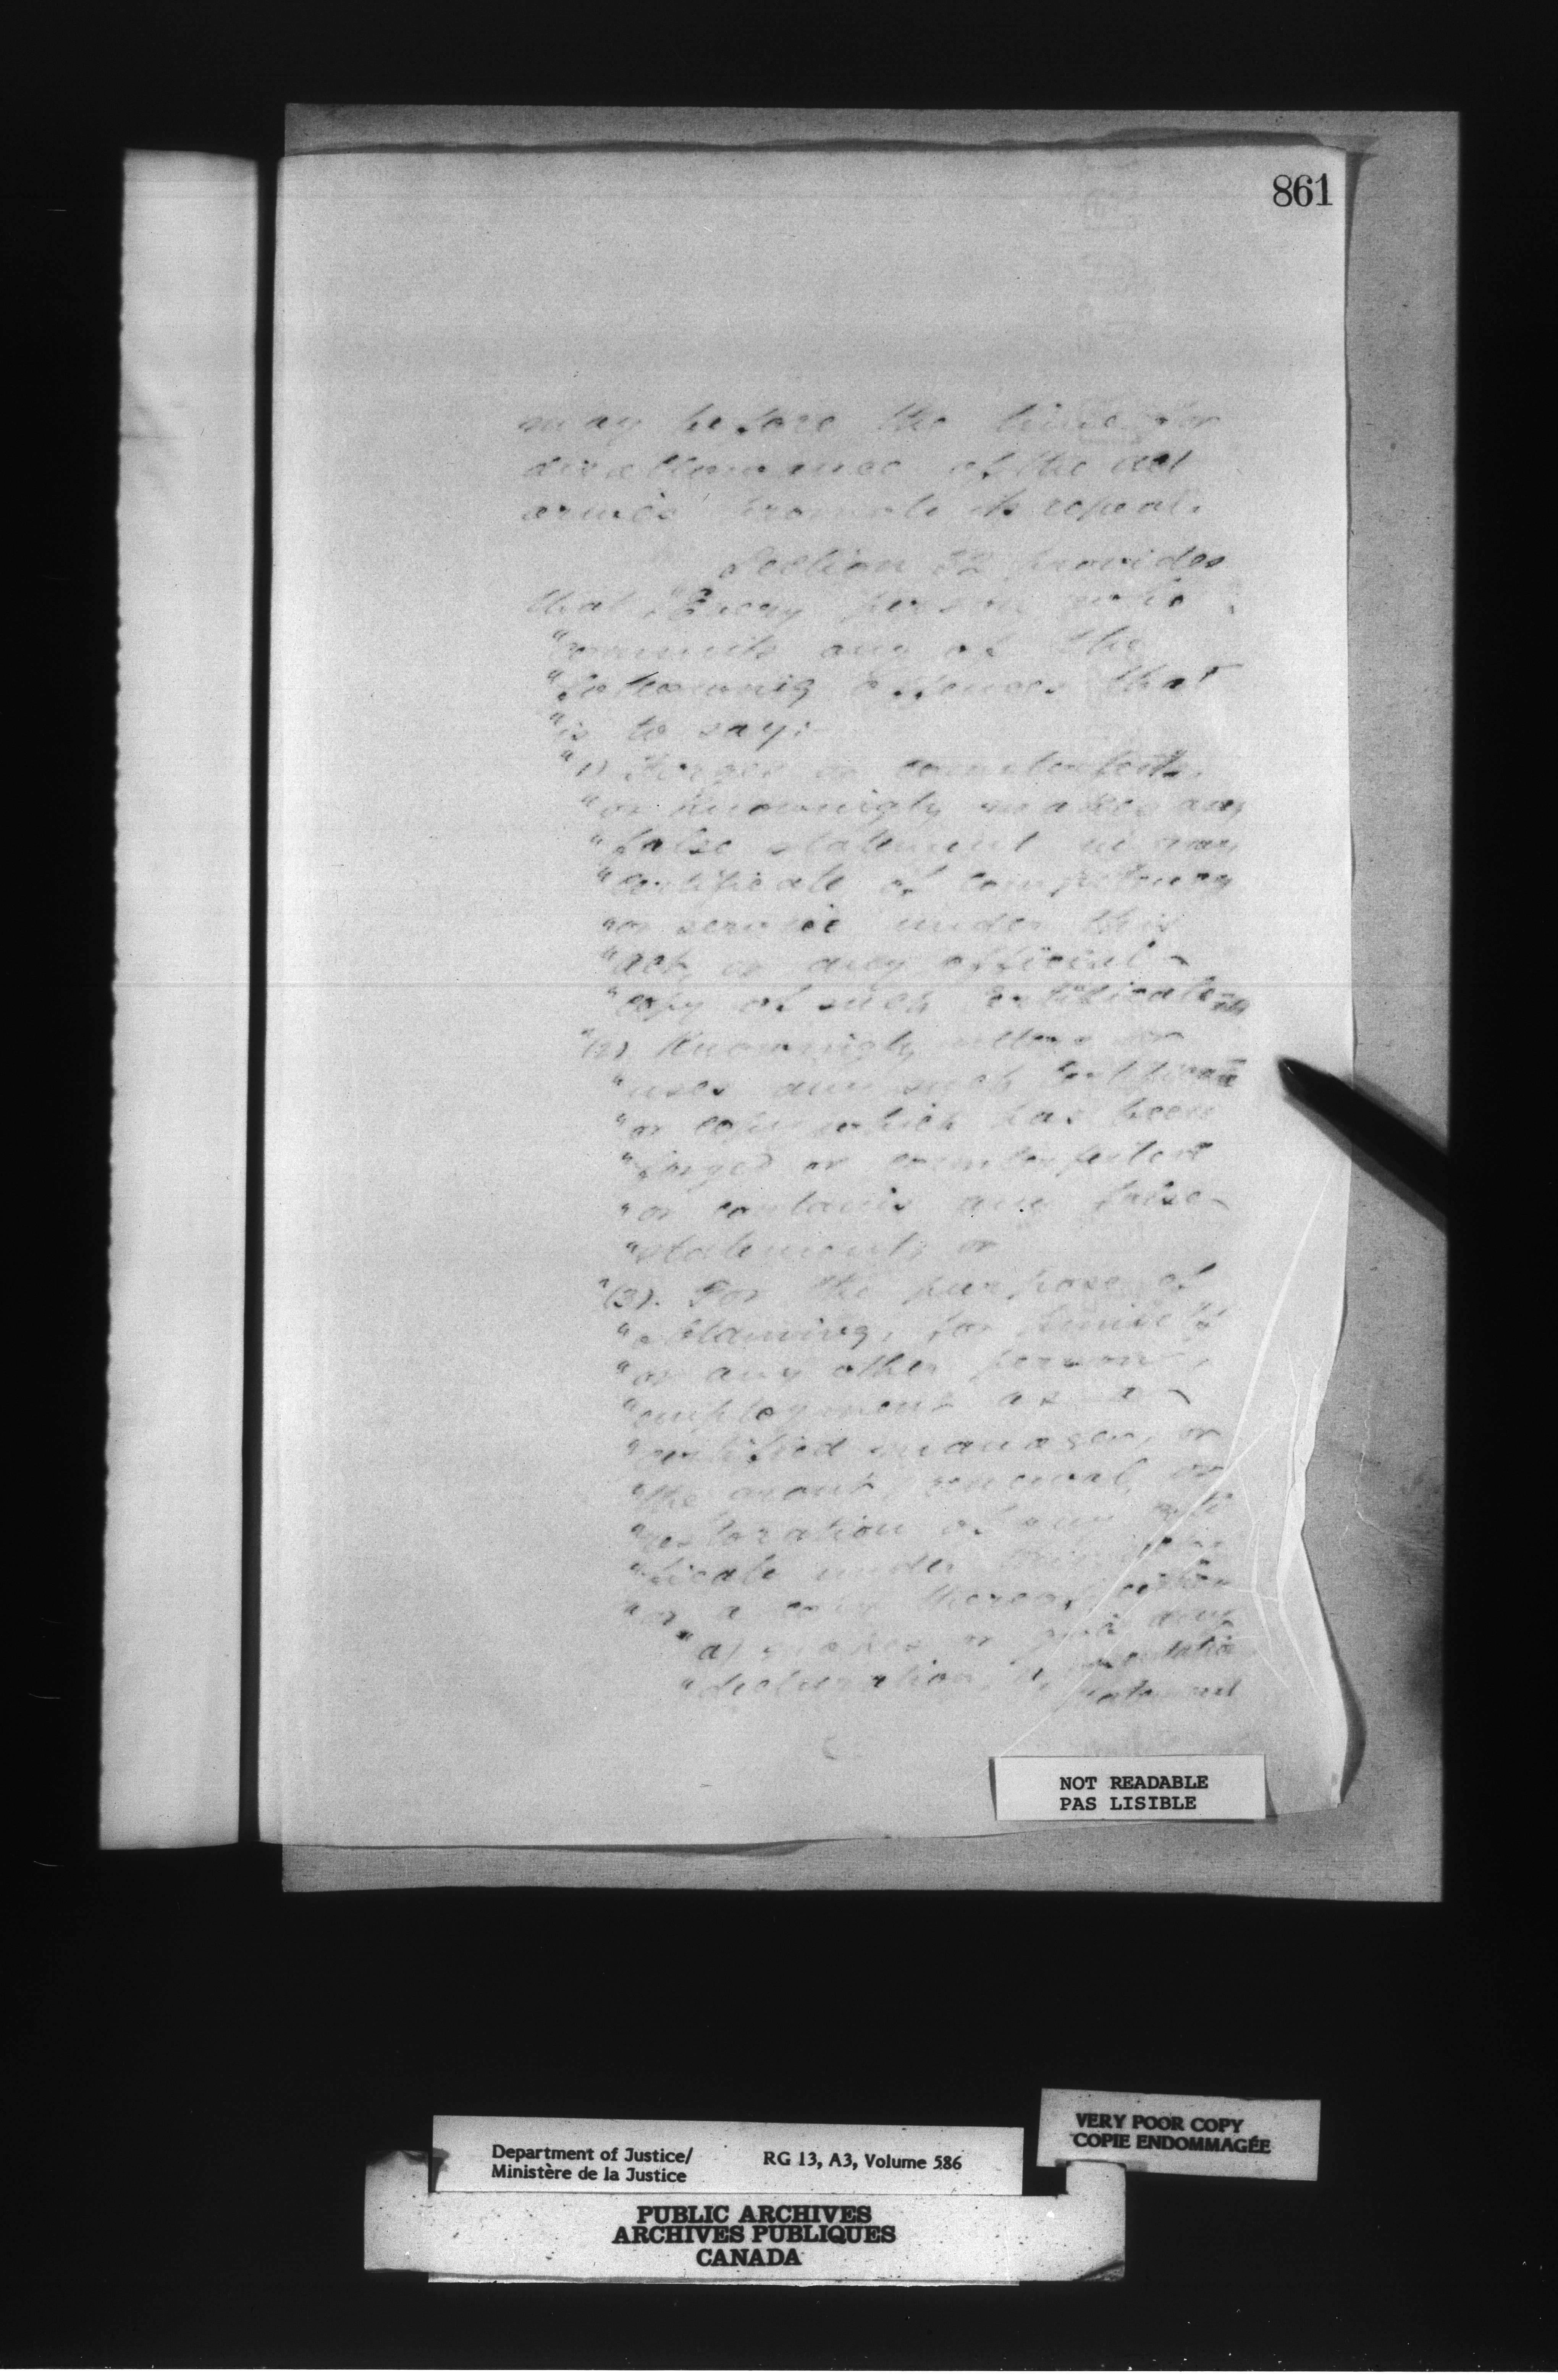 861
may before the time for
disallowance of the act
arrives promote its repeal.
Section 32 provides
that "Every person who
"commits any of the
"following offences that
"is to say:
"1) Forges or counterfeits,
"or knowingly makes any
"false statement in any
"certificate of competency
"or service under this
"act, or any official
"copy of such certificate
"(2) Knowingly utters or
"uses any such certificate
"or copy which has been
"forged or counterfeited
"or contains any false
"statement; or
"(3). For the purpose of
"obtaining, for himself
"or any other person,
"employment as a
"certified manager, or
"the grant, renewal, or
"restoration of any certi
"ficate under this
"or a copy thereof, either
"a) makes or gives any
"declaration, representation
statement
NOT READABLE
PAS LISIBLE
VERY POOR COPY
COPIE ENDOMMAGÉE
Department of Justice/ RG 13, A3, Volume 586
Ministère de la Justice
PUBLIC ARCHIVES
ARCHIVES PUBLIQUES
CANADA